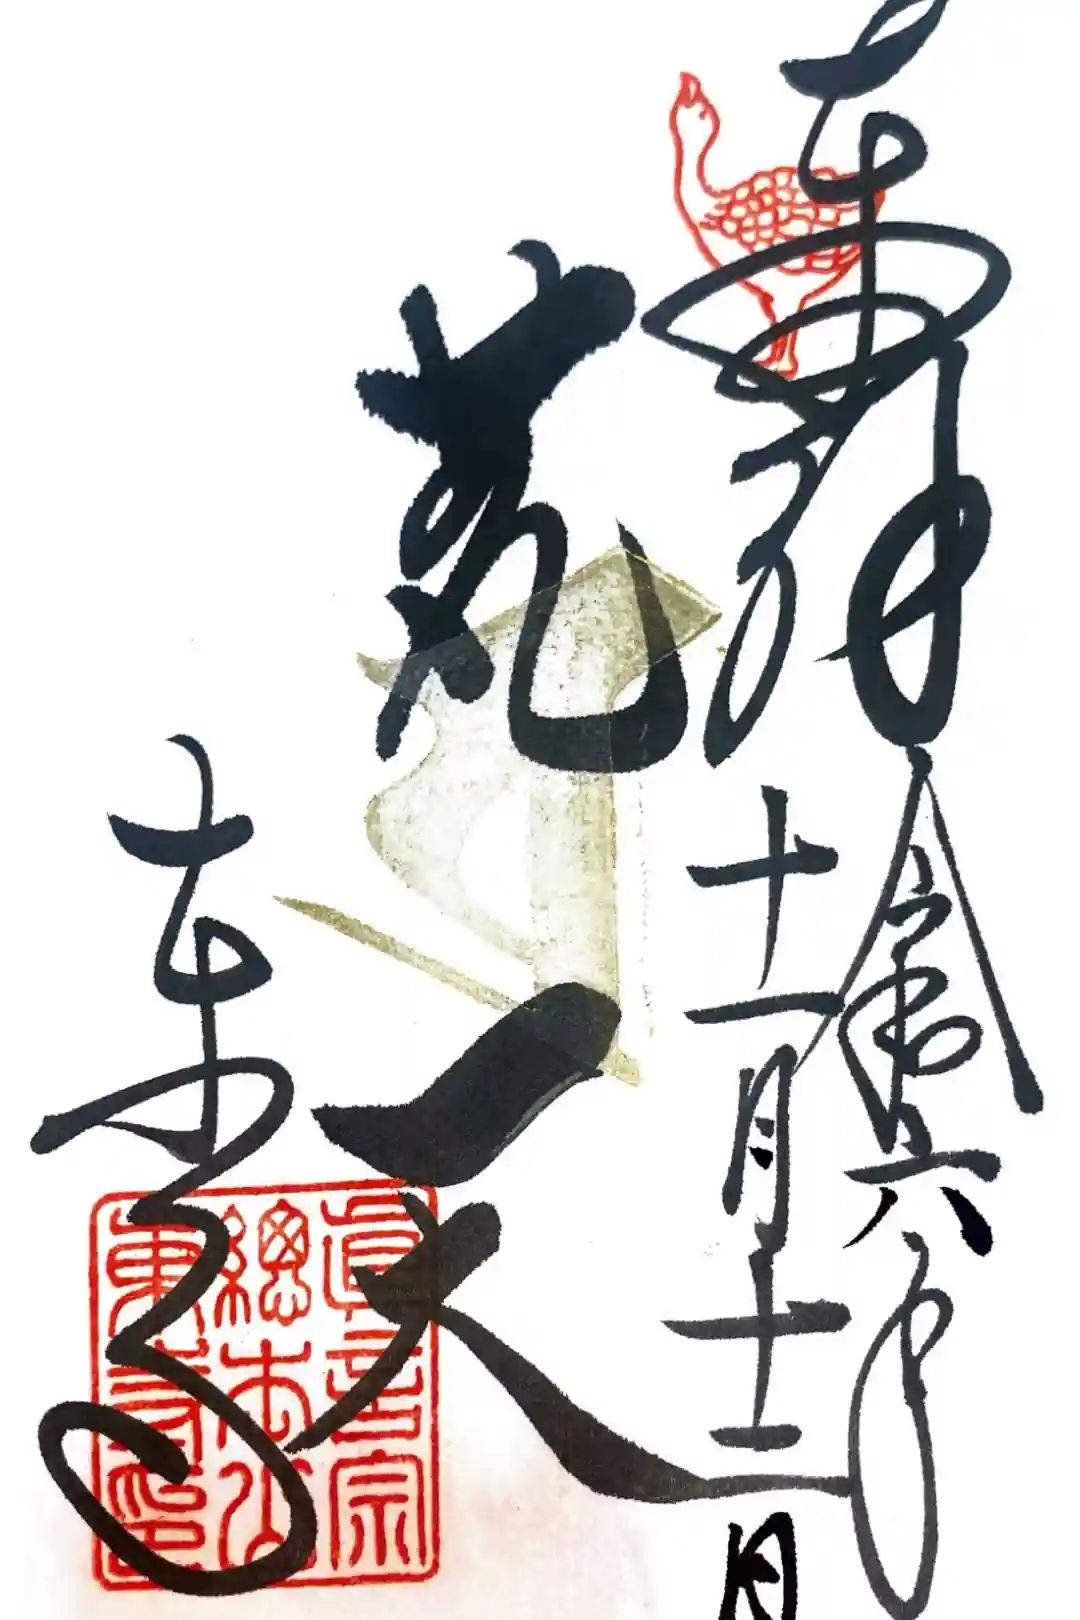 奉拝
令和六年
十一月十二日
梵天
東寺
眞言宗
總本山
東寺印